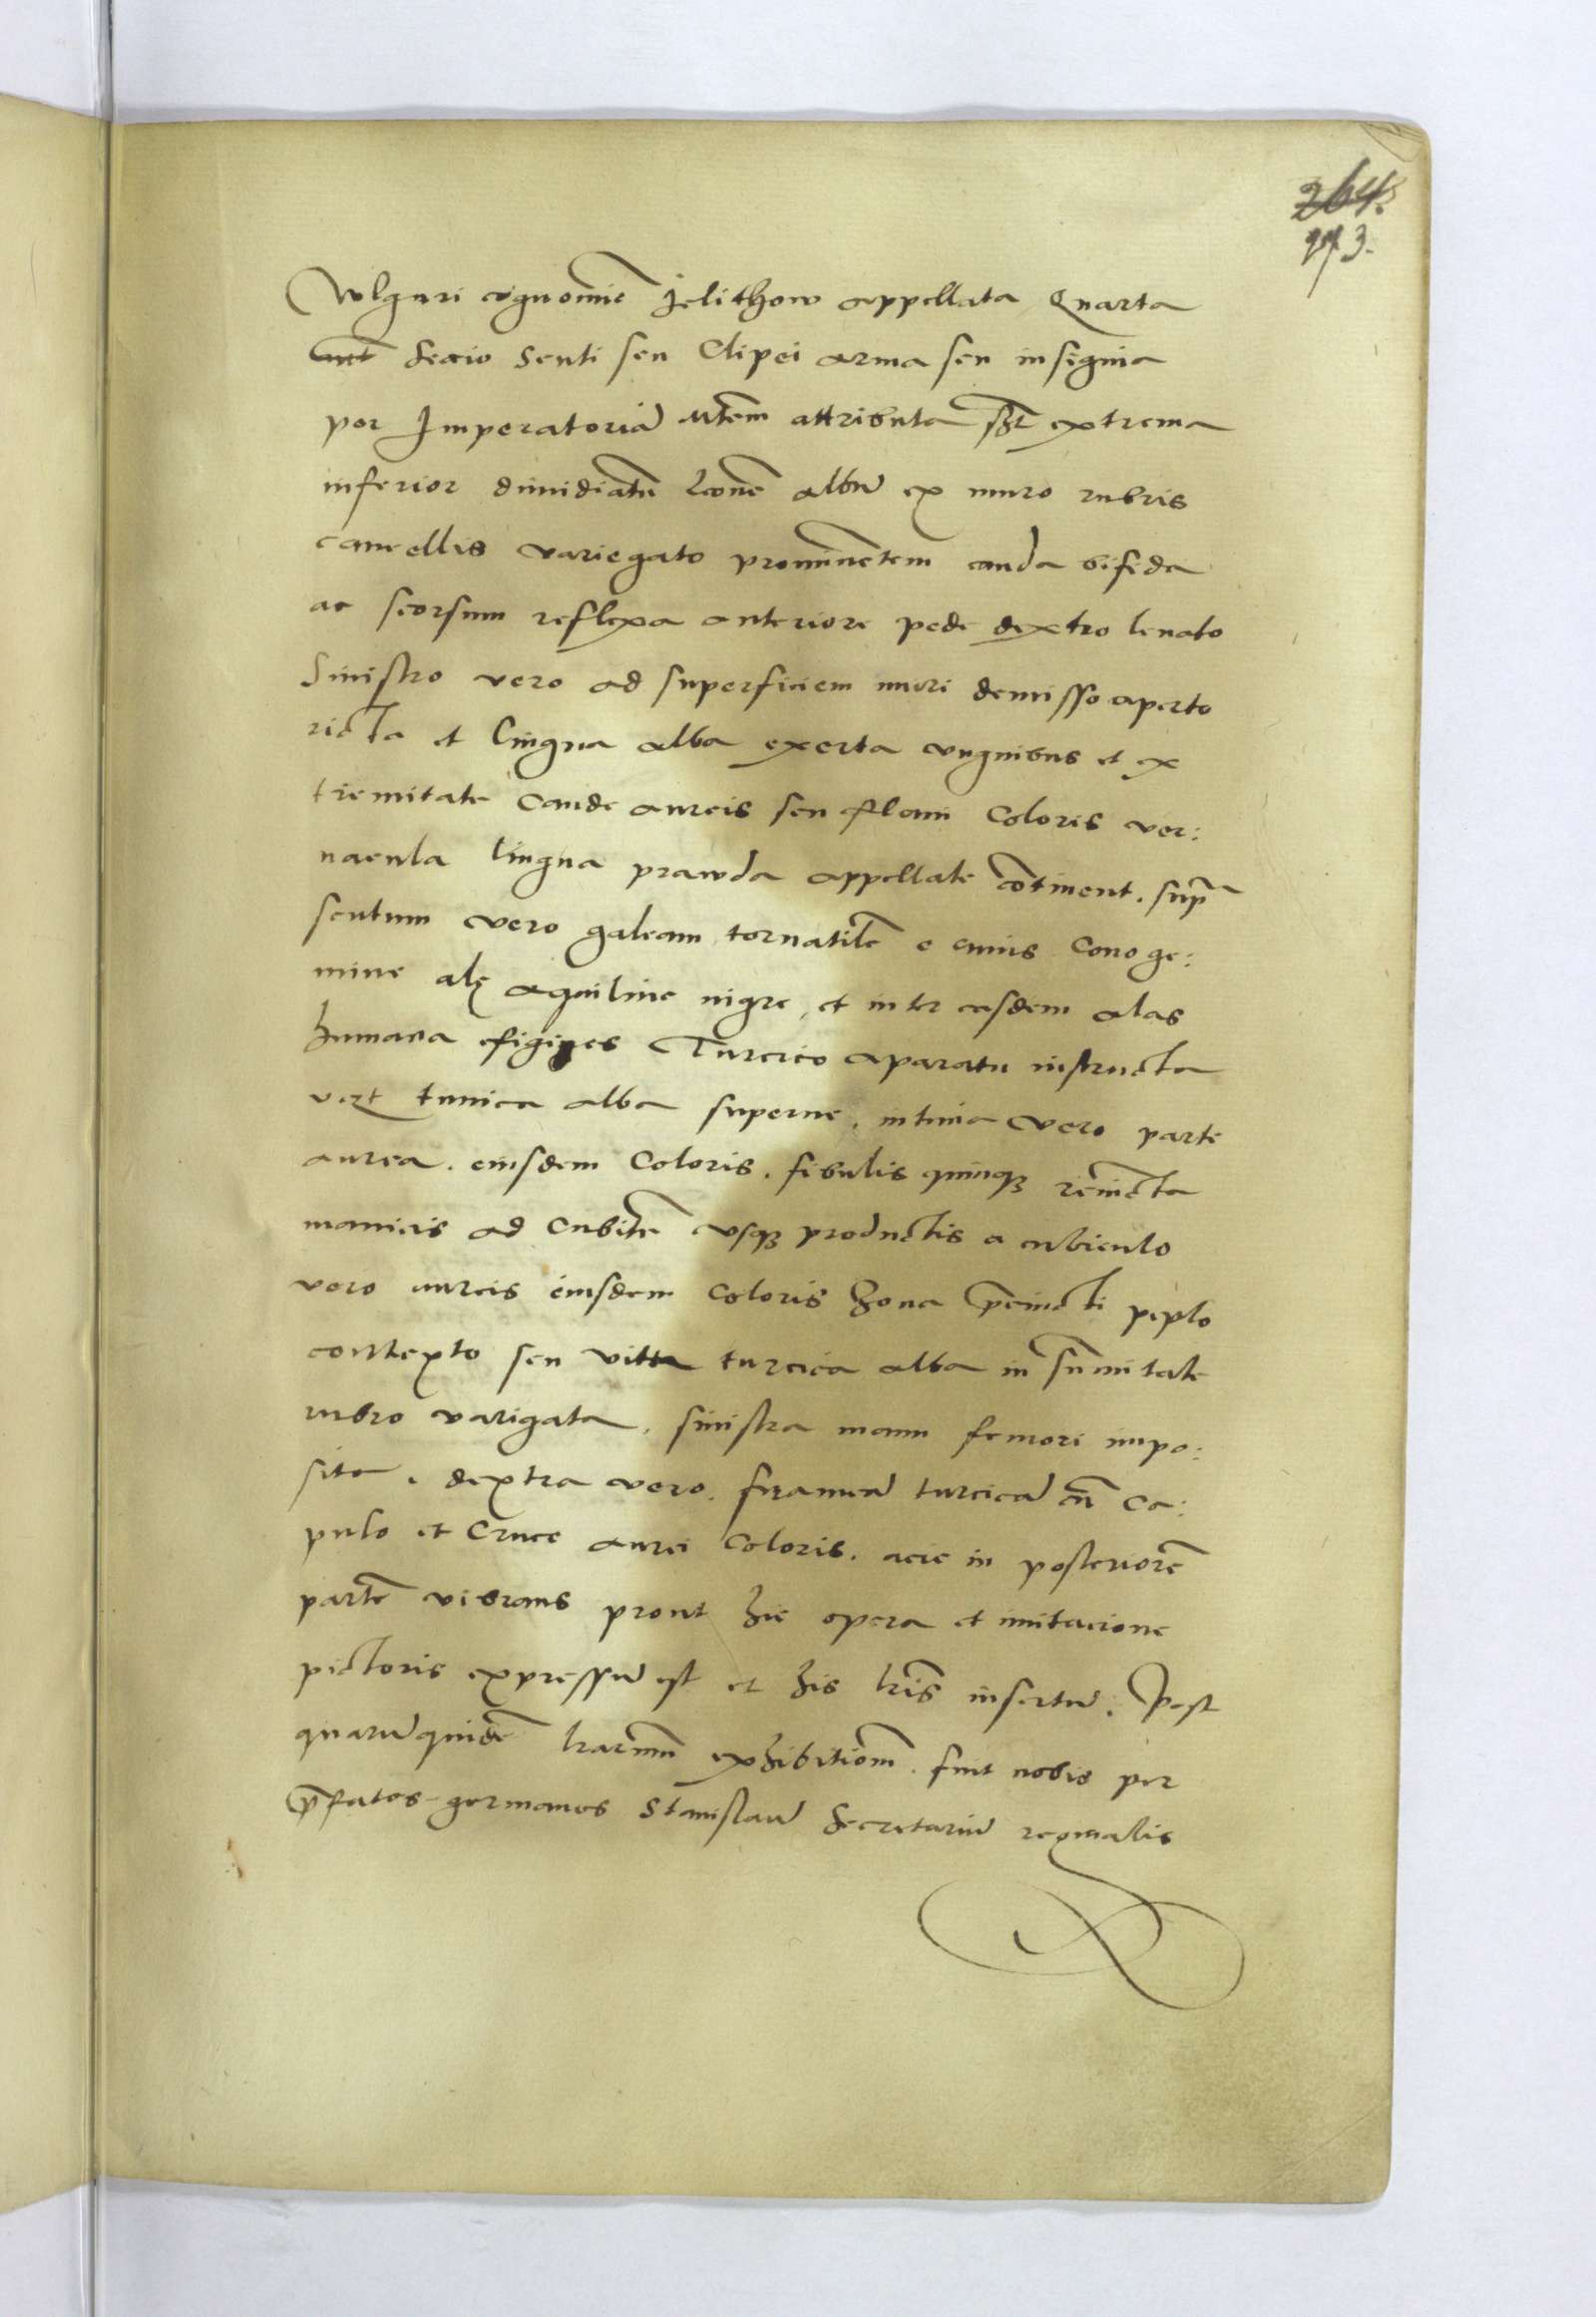 264.
273.
Wlgari cognomīe Jelithow appellata Quarta
aut̄ sectio Scuti seu Clipei arma seu insignia
per Imperatoriā Mtem attributa sct̄ extrema
inferior dimidiatū Leonē albū ex muro rubris
cancellis variegato prominētem cauda bifida
ac seorsum reflexa anteriore pede dextro leuato
Sinistro vero ad superficiem muri demisso aperto
rictu et lingua alba exerta vnguibus et ex
tremitate caude aureis seu flaui coloris ver:
nacula lingua prawda appellate cōtinent. supra
scutum vero galeam tornatilē e cuius cono ge:
mine alę aquiline nigre, et inter easdem alas
humana efigies Turcico aparatu instructa
vcz tunica alba superne, intima vero parte
aurea. eiusdem coloris. fibulis quinqȝ reuincta
manicis ad cubitū vsqȝ productis a cubiculo
vero aureis eiusdem coloris zona p̄cincti peplo
contexto seu vitta turcica alba in sūmitate
rubro varigata, sinistra manu femori impo:
sita. dextra vero. frameā turcicā cū ca:
pulo et cruce aurei coloris. acie in posteriorē
partē vibrans prout hic opera et imitacione
pictoris expressū est et his lrīs insertū. Post
quarū quidē lrarum exhibitionē. fuit nobis per
p̄fatos germanos Stanislaū Secretariū reginalis